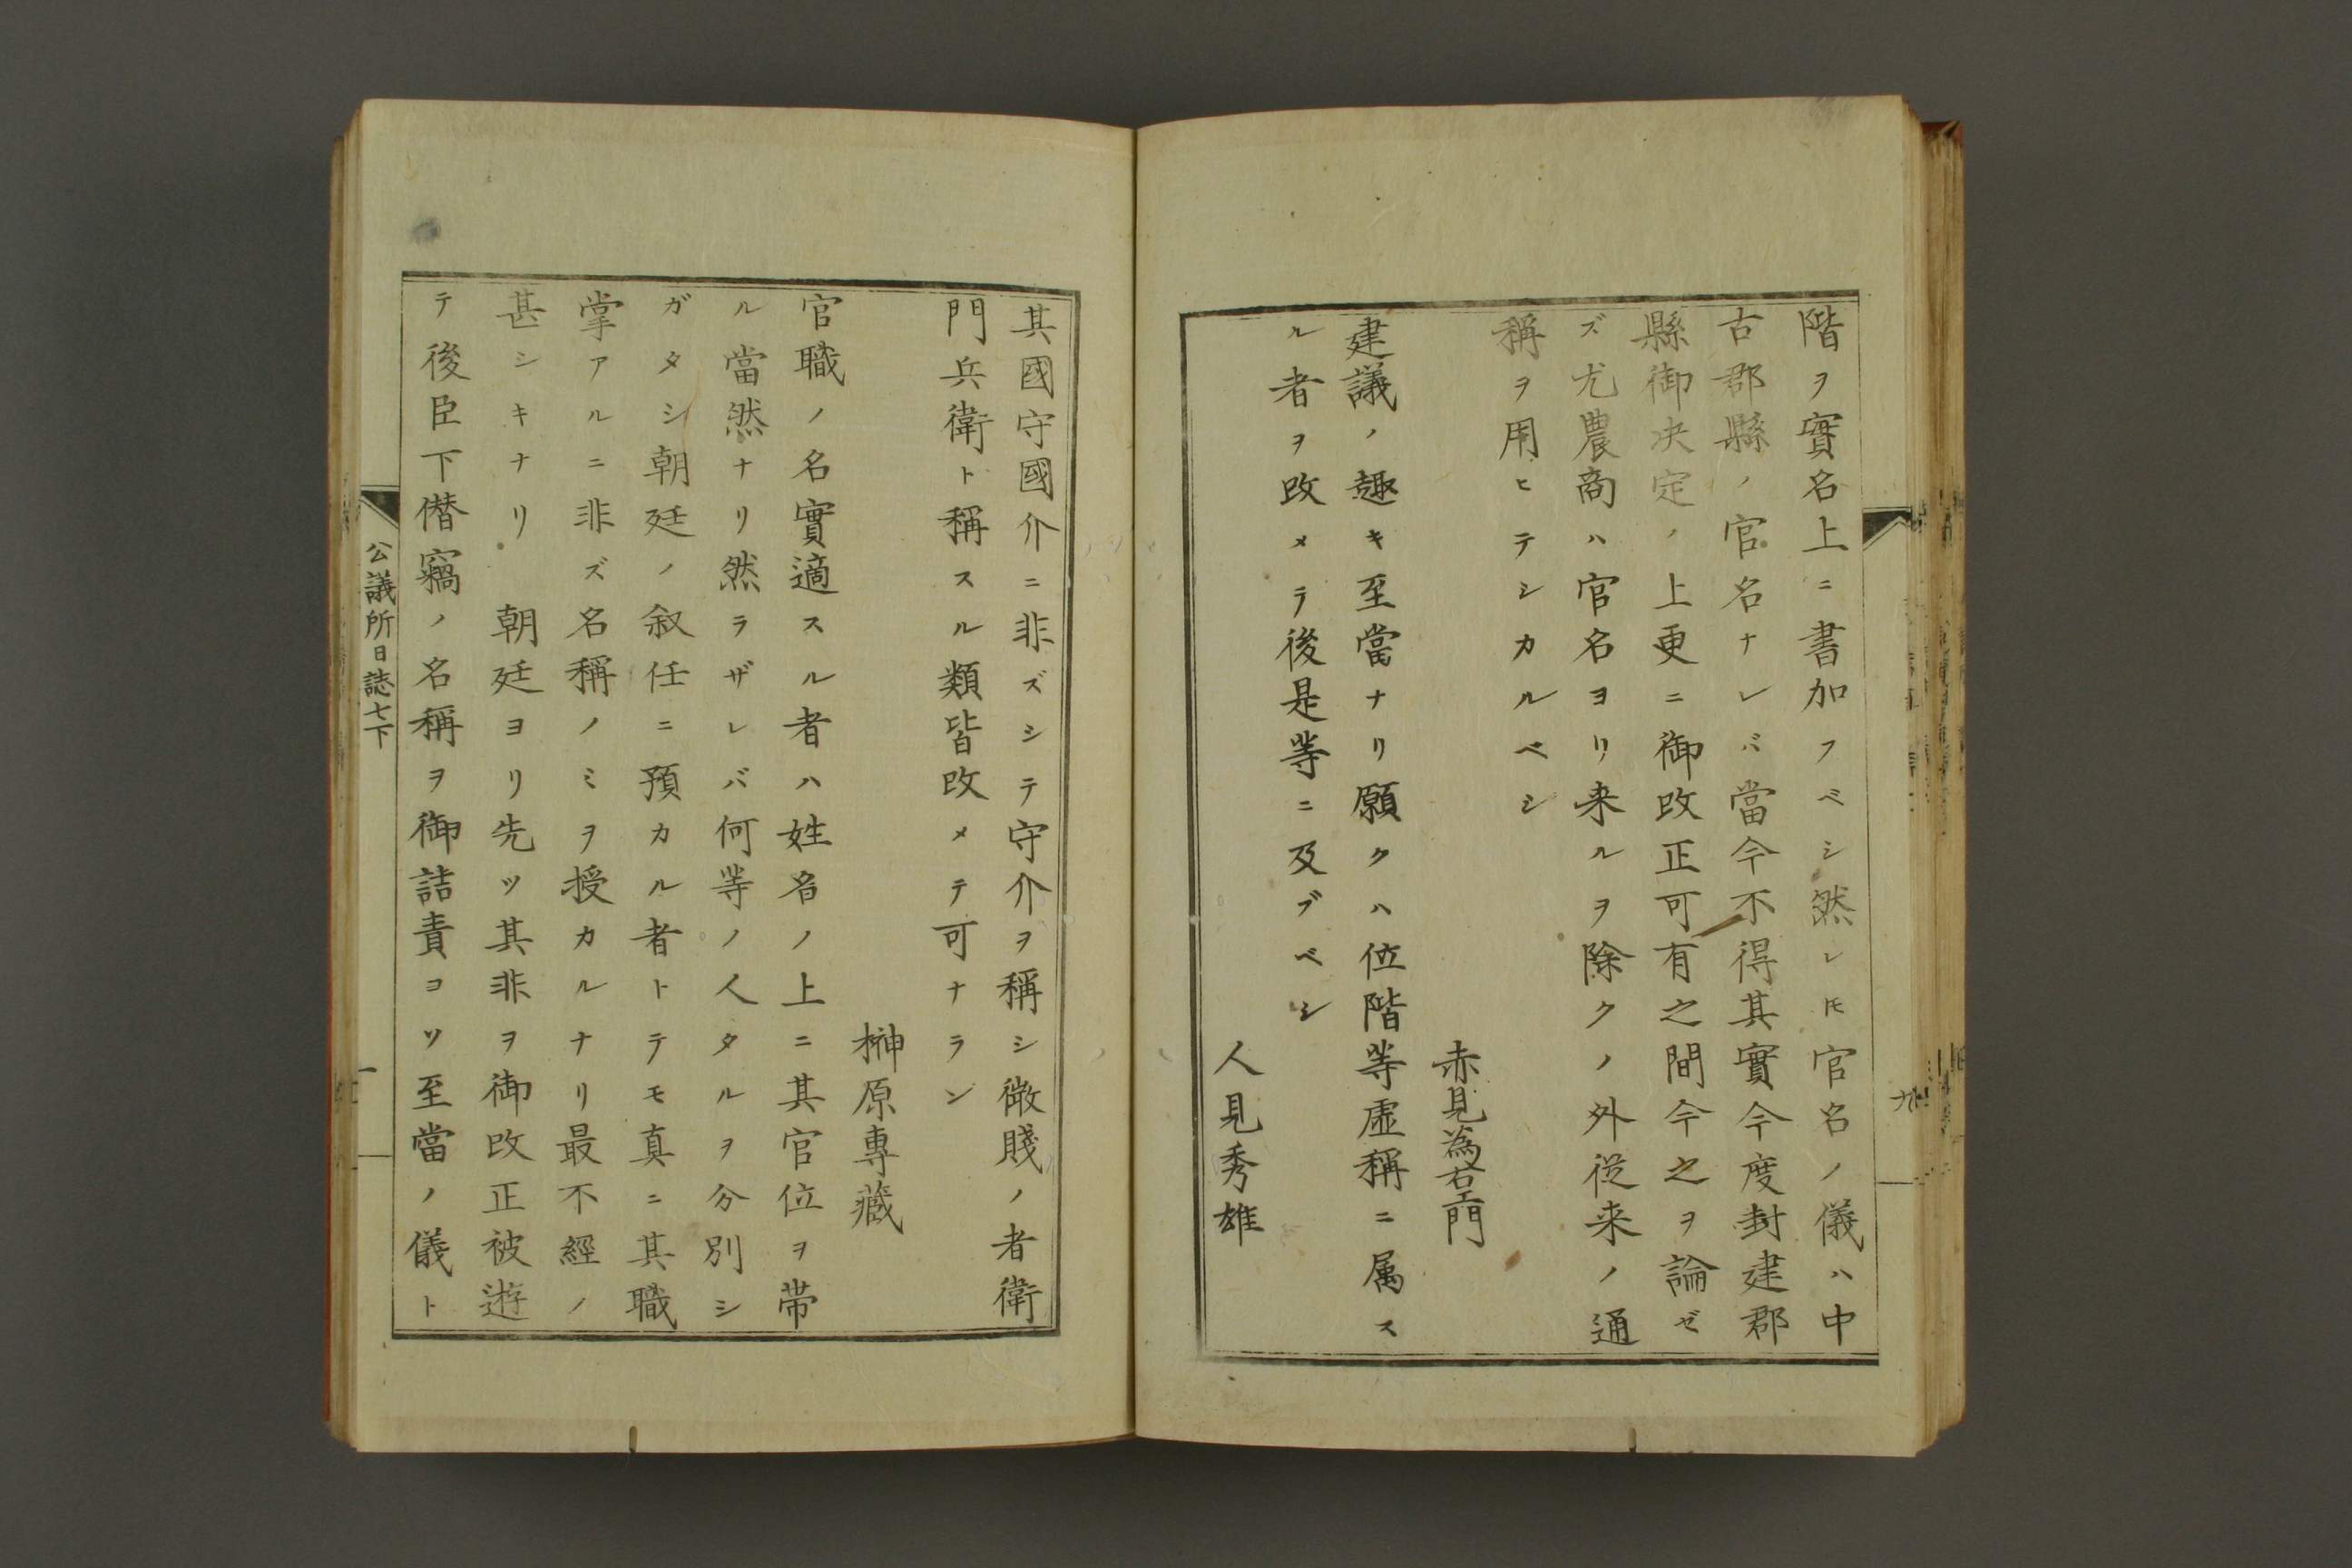 階ヲ實名上ニ書加フベシ然レ𪜈官名ノ儀ハ中
古郡縣ノ官名ナレバ當今不得其實今度封建郡
縣御決定ノ上更ニ御改正可有之間今之ヲ論ゼ
ズ尤農商ハ官名ヨリ来ルヲ除クノ外従来ノ通
稱ヲ用ヒテシカルベシ
赤見為右エ門
建議ノ趣キ至當ナリ願クハ位階等虚稱ニ属ス
ル者ヲ改メテ後是等ニ及ブベシ
人見秀雄
其國守國介ニ非ズシテ守介ヲ稱シ微賤ノ者衛
門兵衛ト稱スル類皆改メテ可ナラン
榊原專藏
官職ノ名實適スル者ハ姓名ノ上ニ其官位ヲ帯
ル當然ナリ然ラザレバ何等ノ人タルヲ分別シ
ガタシ朝廷ノ叙任ニ預カル者トテモ真ニ其職
掌アルニ非ズ名稱ノミヲ授カルナリ最不經ノ
甚シキナリ　朝廷ヨリ先ツ其非ヲ御改正被遊
テ後臣下僭竊ノ名稱ヲ御詰責コソ至當ノ儀ト
公議所日誌七下
九